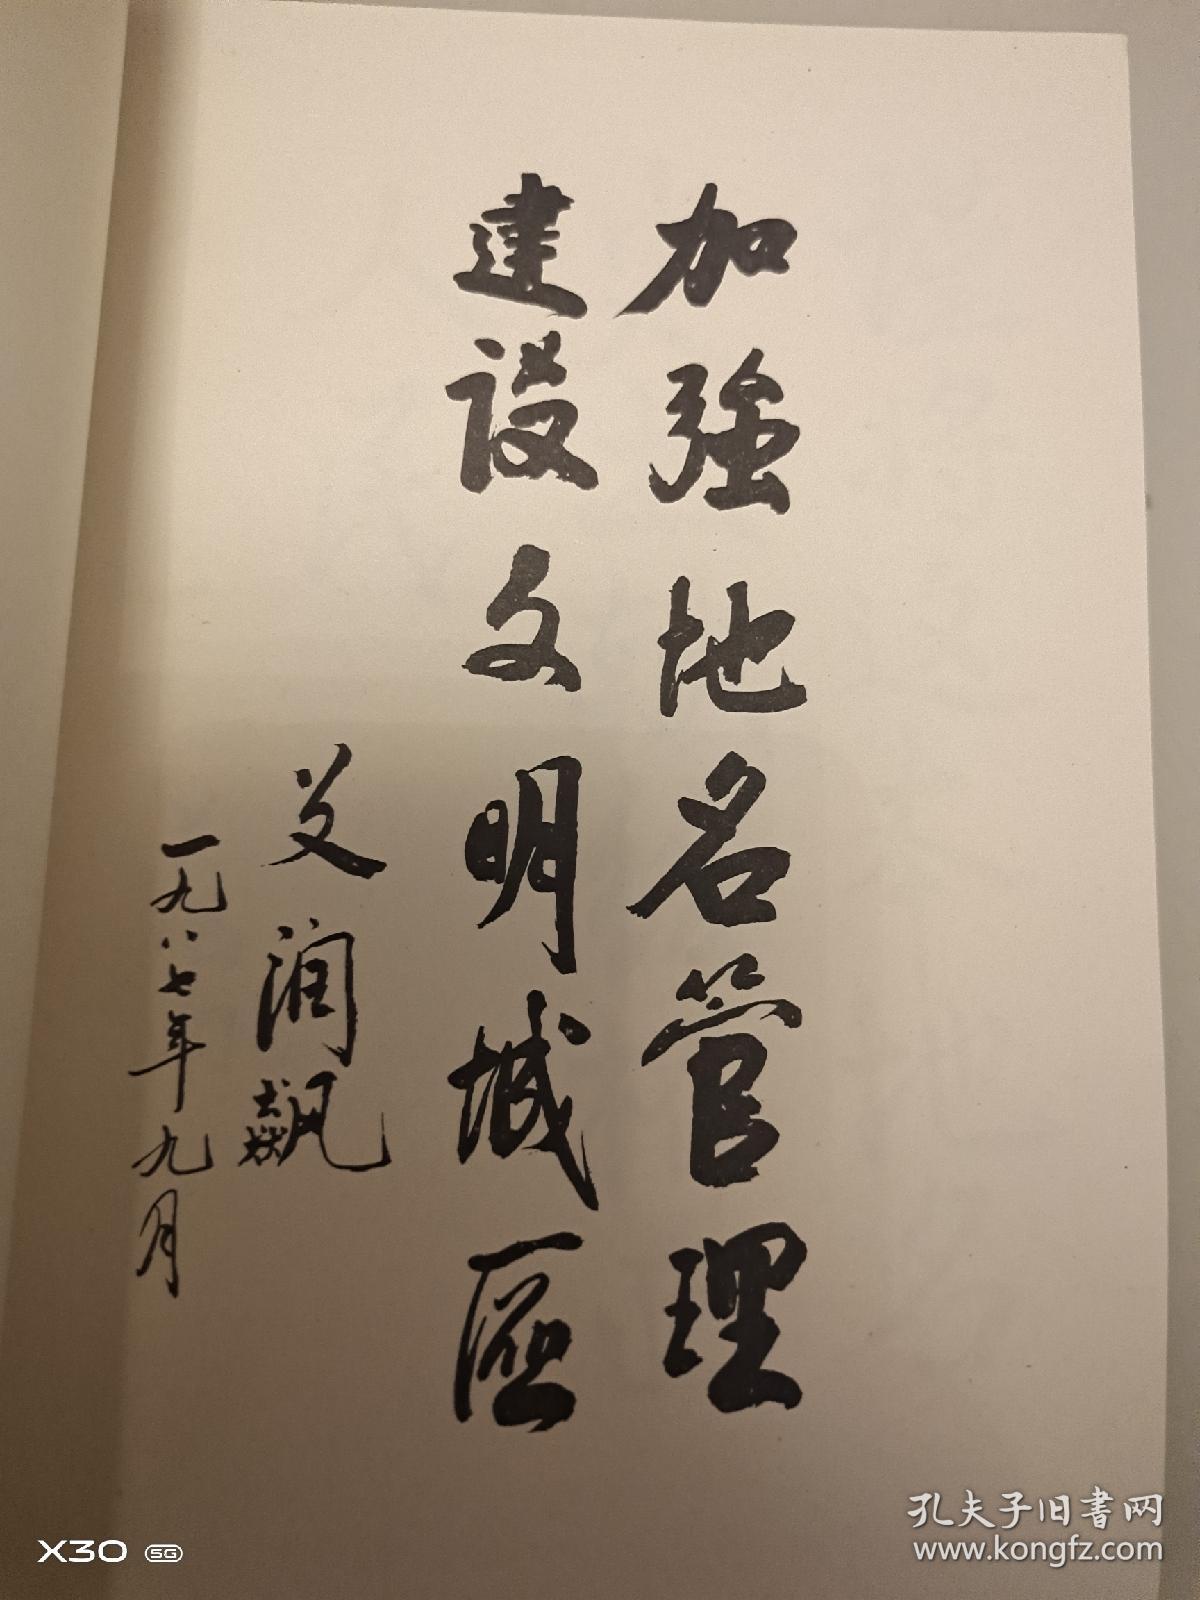 加強地名管理
建设文明城區
艾润飙
一九八七年九月
孔夫子旧書网
www.kongfz.com
X30 5G